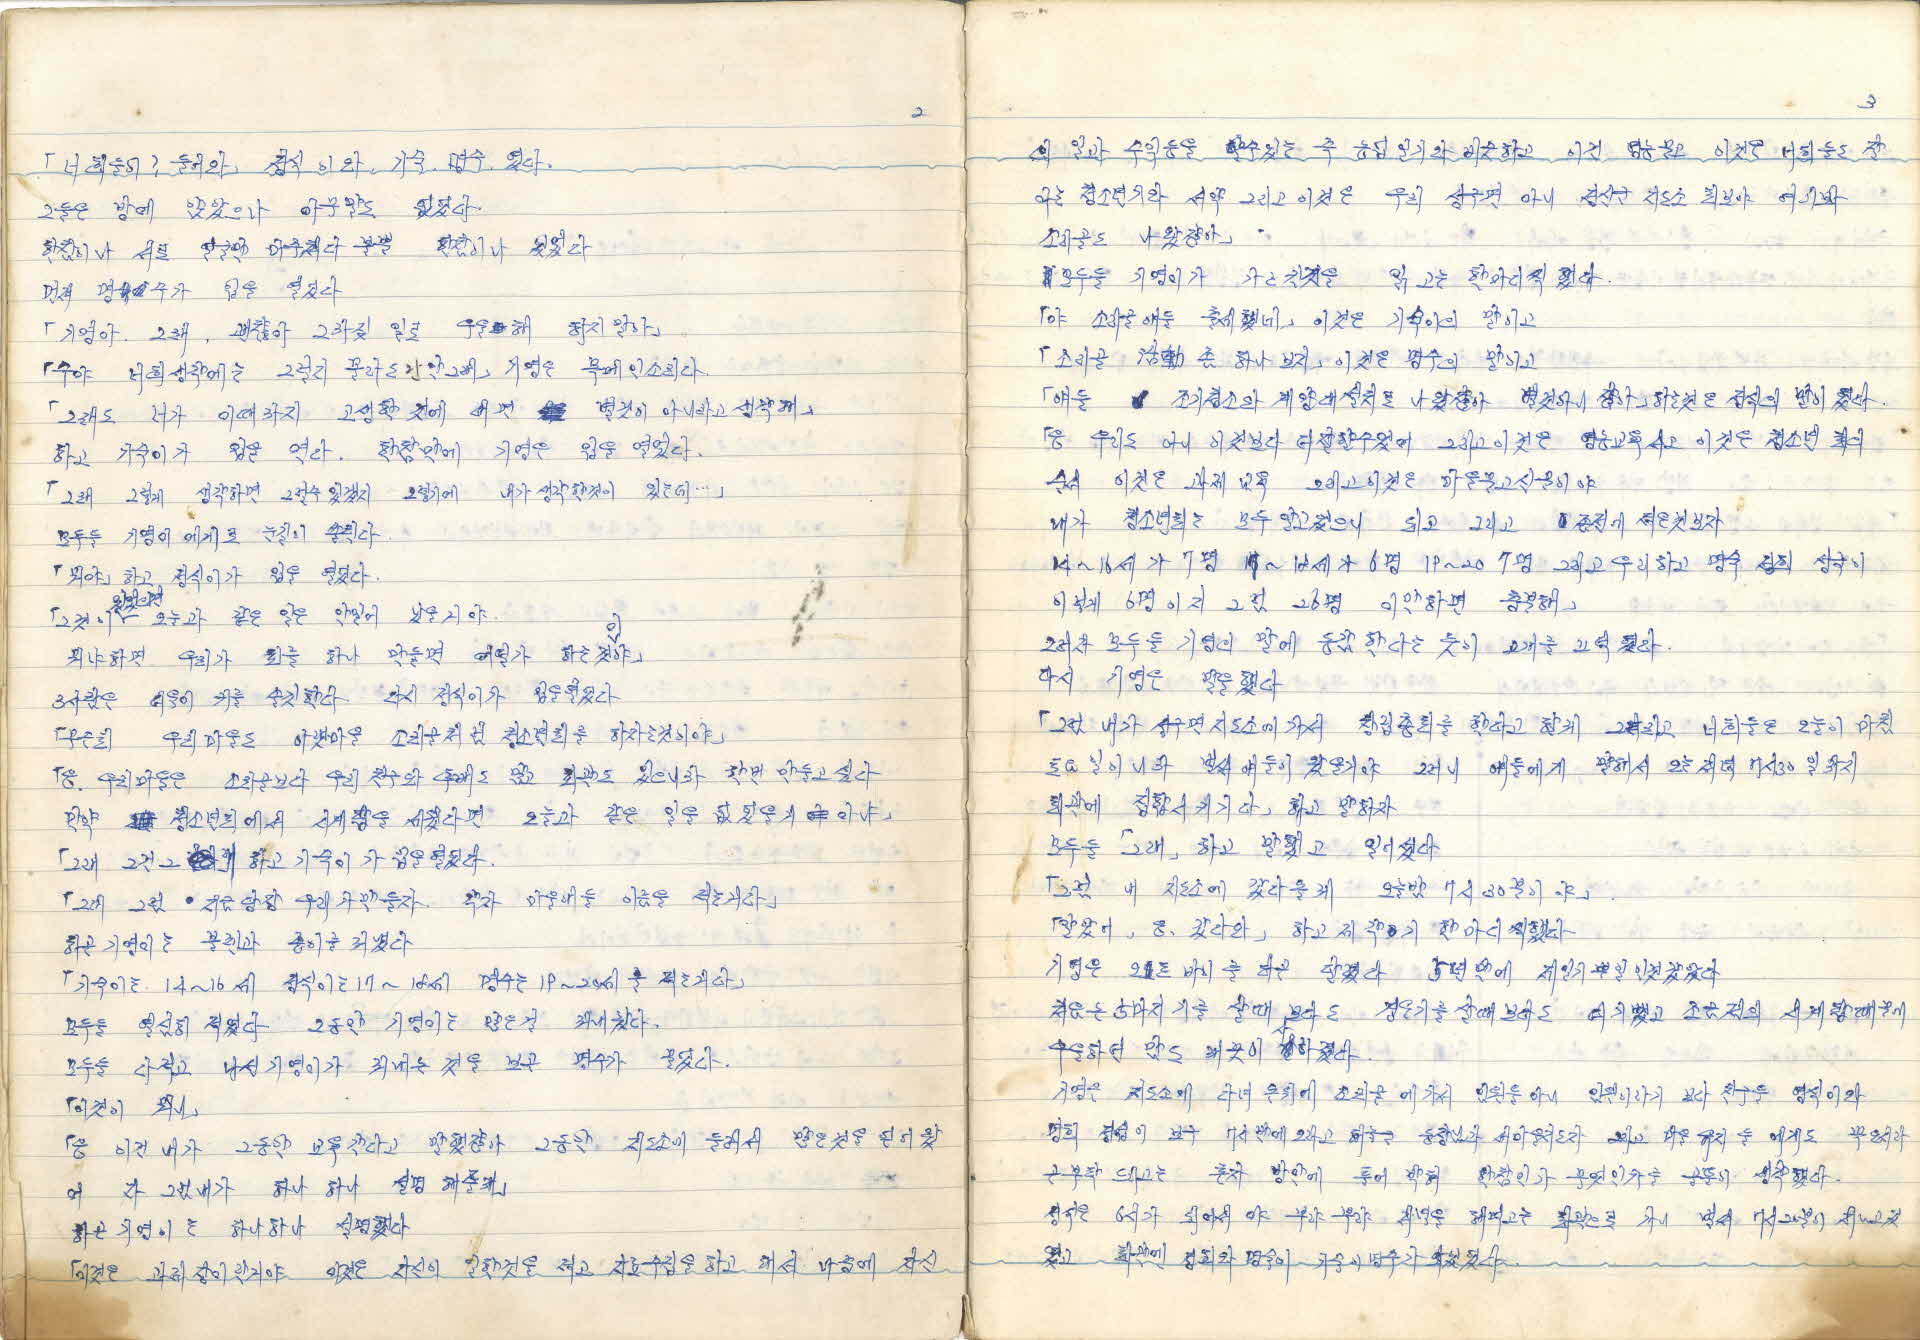 2
「너희들이? 들어와」 정식이와, 기숙, 명수, 였다.
그들은 방에 앉았으나 아무말도 없었다.
한참이나 서로 얼굴만 마주쳐다 볼뿐 한참이나 있었다
먼저 명수가 입을 열었다
「기영아. 그래, 괜찮아 그까짓 일로 우울해 하지 말아」
「수야 너희 생각에는 그럴지 몰라도 난 안그래」 기영은 목메인소리다.
「그래도 너가 이때까지 고생한 것에 대면 별것이 아니라고 생각해」
하고 기숙이가 입을 연다. 한참만에 기영은 입을 열었다.
「그래 그렇게 생각하면 그럴수 있겠지 그렇기에 내가 생각한것이 있는데…」
모두들 기영이에게로 눈길이 쏠렸다.
「뭐야」 하고 정식이가 입을 열었다.
「그것이 있었으면 오늘과 같은 일은 안일어 났을지야.
뭐냐하면 우리가 회를 하나 만들면 어떨가 하는것이야」
3사람은 더욱이 귀를 솔깃한다 다시 정식이가 입을열었다
「무슨회 우리마을도 아랫마을 소리골처럼 청소년회를 하자는것이야」
「응, 우리마을은 소리골보다 우리 친구와 후배도 많고 회관도 있으니까 한번 만들고 싶다
만약 청소년회에서 세계탑을 세웠다면 오늘과 같은 일은 없었을지 아니야」
「그래 그건 그래」 하고 기숙이가 입을열었다.
「그래 그럼 처음 당장 우리가만들자. 각자 마을애들 이름을 적는거다」
하곤 기영이는 볼펜과 종이를 꺼냈다
「기숙이는 14~16세 정식이는 17~18세 명수는 19~20세를 적는거다」
모두들 열심히 적었다 그동안 기영이는 많은걸 꺼내왔다.
모두들 다 적고 나선 기영이가 꺼내는 것을 보곤 명수가 물었다.
「이것이 뭐니」
「응 이건 내가 그동안 교육간다고 말했잖아 그동안 지도소에 들러서 많은것을 얻어왔
어 자 그럼 내가 하나 하나 설명 해줄게」
하곤 기영이는 하나하나 설명했다
「이것은 과제장이란거야 이것은 자신이 일한것을 적고 자료수집을 하고 해서 나중에 자신
3
의 일과 수익등을 알수있는 즉 농업일기와 비슷하고 이건 영농물고 이것은 너희들도 잘
아는 청소년기와 서약 그리고 이것은 우리 성주면 아니 성산군 지도소 회보야 여기봐
소리골도 나왔잖아」
모두들 기영이가 가르친것을 읽고는 한마디씩 했다.
「야 소리골 애들 출세했네」 이것은 기숙이의 말이고
「소리골 活動 좀 하나 보지」 이것은 명수의 말이고
「얘들 조기청소와 계양대설치로 나왔잖아 별것아니잖아」 하는것은 정식의 말이었다.
「응 우리도 아니 이것보다 더 잘할수있어 그리고 이것은 영농교육서고 이것은 청소년 회의
순서 이것은 과제 교육 그리고 이것은 마을물고식물이야
내가 청소년회는 모두 알고있으니 되고 그리고 종전에 적은것보자
14~16세가 7명 17~18세가 6명 19~20 7명 그리고 우리하고 명숙 정희 성국이
이렇게 6명이지 그럼 26명 이만하면 충분해」
그러자 모두들 기영의 말에 동감한다는 듯이 고개를 끄덕였다.
다시 기영은 말을했다
「그럼 내가 성주면지도소에가서 창립총회를 한다고 할게 그리고 너희들은 오늘이 마침
토요일이니까 벌써 애들이 왔을거야 그러니 애들에게 말해서 오늘저녁 7시30일까지
회관에 집합시키기다」 하고 말하자
모두들 「그래」 하고 말했고 일어섰다
「그럼 내 지도소에 갔다올게 오늘밤 7시30분이야」.
「알았어, 응, 갔다와」 하고 제각기 한마디씩했다
기영은 오토바이를 타곤 달렸다 5년만에 제일기쁜일인것같았다
처음논 5마지기를 살때 보다도 경운기를 살때보다도 더기뻤고 조금전의 세계탑때문에
우울하던 맘도 깨끗이 가셔졌다.
기영은 지도소에 다녀 온뒤에 소리골에가서 임원들 아니 임원이라기 보다 친구들 영식이와
명희 정영이 보구 7시반에 오라고 해놓곤 농협보다 새마을지도자 그리고 마을 유지들에게도 꼭 오시라
곤 부탁드리고는 혼자 방안에 틀어 박혀 한참인가 무엇인가를 곰똘히 생각했다.
정식은 6시가 되어서야 부랴 부랴 저녁을 해먹고는 회관으로 가니 벌써 7시20분이 지나고있
었고 회관엔 정희와 명숙이 기숙이 명수가 와있었다.